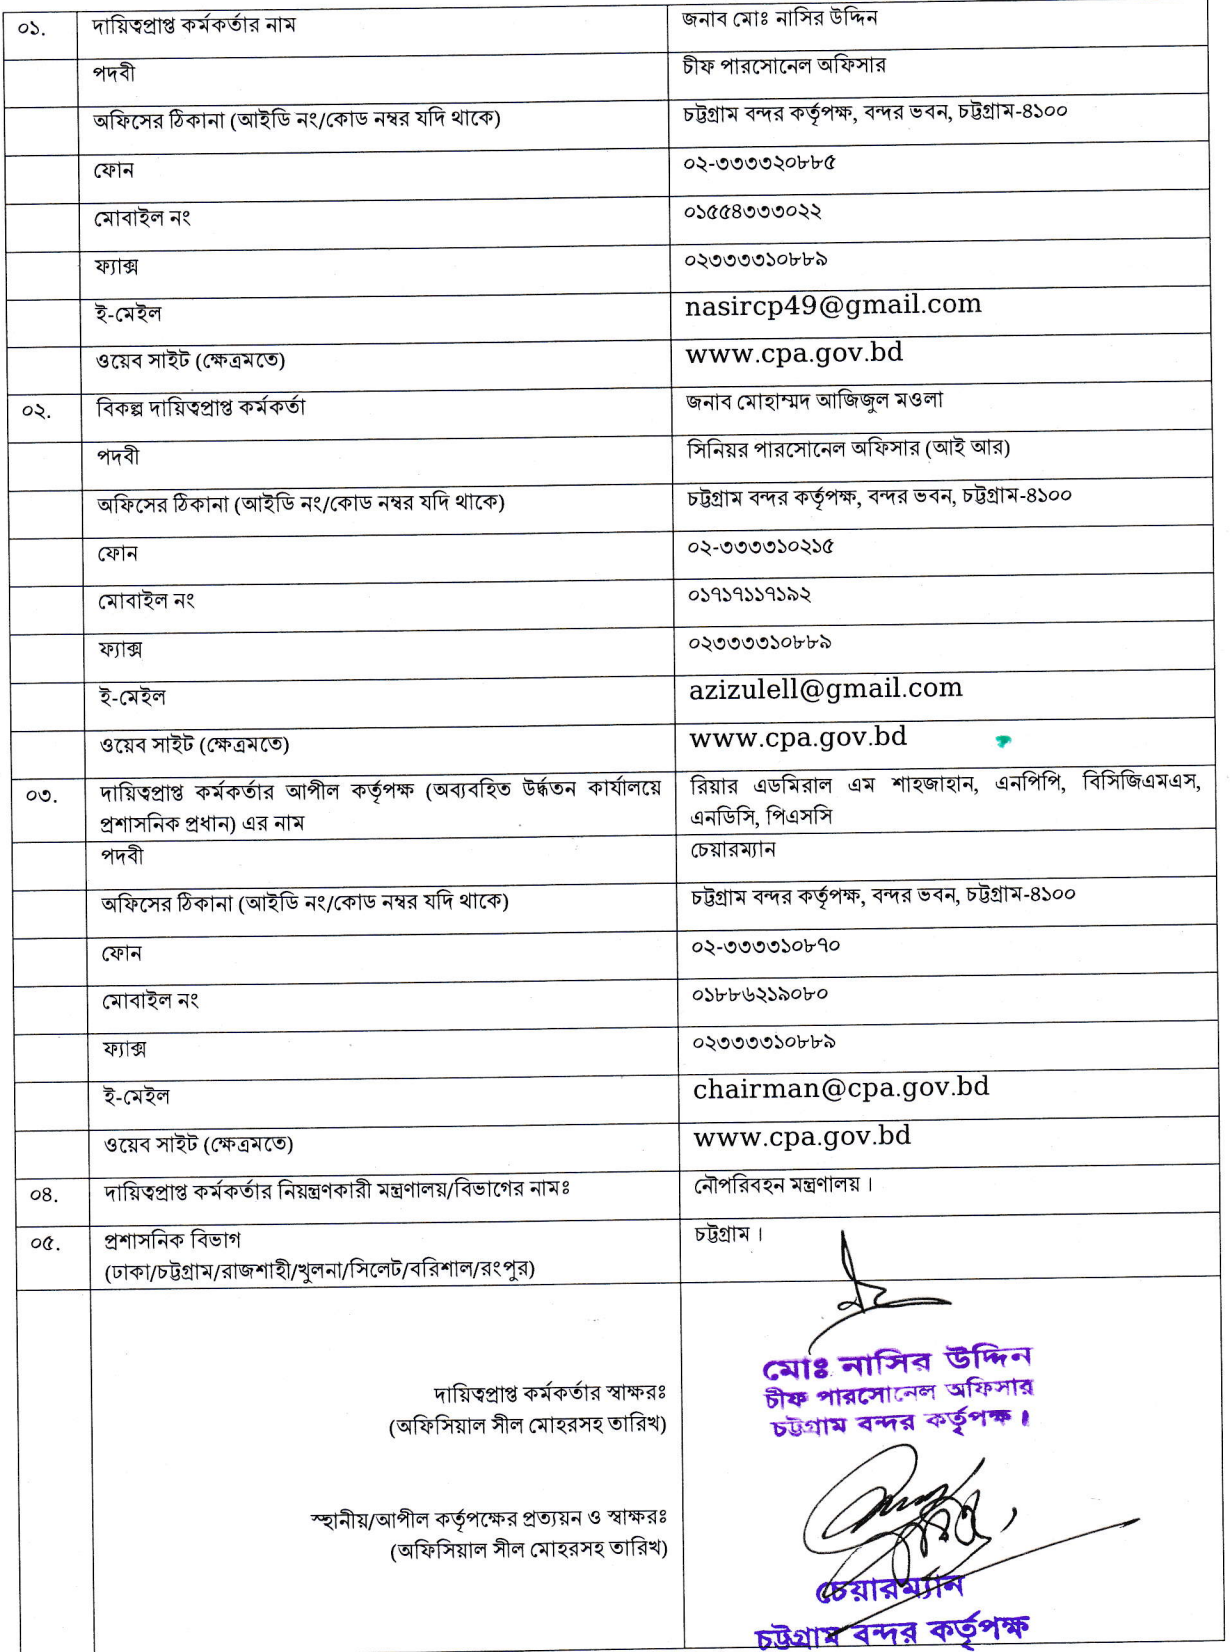 ০১. দায়িত্বপ্রাপ্ত কর্মকর্তার নাম জনাব মোঃ নাসির উদ্দিন
পদবী চীফ পারসোনেল অফিসার
অফিসের ঠিকানা (আইডি নং/কোড নম্বর যদি থাকে) চট্টগ্রাম বন্দর কর্তৃপক্ষ, বন্দর ভবন, চট্টগ্রাম-৪১০০
ফোন ০২-৩৩৩৩২০৮৮৫
মোবাইল নং ০১৫৫৪৩৩৩০২২
ফ্যাক্স ০২৩৩৩৩১০৮৮৯
ই-মেইল nasircp49@gmail.com
ওয়েব সাইট (ক্ষেত্রমতে) www.cpa.gov.bd
০২. বিকল্প দায়িত্বপ্রাপ্ত কর্মকর্তা জনাব মোহাম্মদ আজিজুল মওলা
পদবী সিনিয়র পারসোনেল অফিসার (আই আর)
অফিসের ঠিকানা (আইডি নং/কোড নম্বর যদি থাকে) চট্টগ্রাম বন্দর কর্তৃপক্ষ, বন্দর ভবন, চট্টগ্রাম-৪১০০
ফোন ০২-৩৩৩৩১০২১৫
মোবাইল নং ০১৭১৭১১৭১৯২
ফ্যাক্স ০২৩৩৩৩১০৮৮৯
ই-মেইল azizulell@gmail.com
ওয়েব সাইট (ক্ষেত্রমতে) www.cpa.gov.bd
০৩. দায়িত্বপ্রাপ্ত কর্মকর্তার আপীল কর্তৃপক্ষ (অব্যবহিত উর্দ্ধতন কার্যালয়ে রিয়ার এডমিরাল এম শাহজাহান, এনপিপি, বিসিজিএমএস,
প্রশাসনিক প্রধান) এর নাম এনডিসি, পিএসসি
পদবী চেয়ারম্যান
অফিসের ঠিকানা (আইডি নং/কোড নম্বর যদি থাকে) চট্টগ্রাম বন্দর কর্তৃপক্ষ, বন্দর ভবন, চট্টগ্রাম-৪১০০
ফোন ০২-৩৩৩৩১০৮৭০
মোবাইল নং ০১৮৮৬২১৯০৮০
ফ্যাক্স ০২৩৩৩৩১০৮৮৯
ই-মেইল chairman@cpa.gov.bd
ওয়েব সাইট (ক্ষেত্রমতে) www.cpa.gov.bd
০৪. দায়িত্বপ্রাপ্ত কর্মকর্তার নিয়ন্ত্রণকারী মন্ত্রণালয়/বিভাগের নামঃ নৌপরিবহন মন্ত্রণালয়।
০৫. প্রশাসনিক বিভাগ চট্টগ্রাম।
(ঢাকা/চট্টগ্রাম/রাজশাহী/খুলনা/সিলেট/বরিশাল/রংপুর)
মোঃ নাসির উদ্দিন
দায়িত্বপ্রাপ্ত কর্মকর্তার স্বাক্ষরঃ চীফ পারসোনেল অফিসার
(অফিসিয়াল সীল মোহরসহ তারিখ) চট্টগ্রাম বন্দর কর্তৃপক্ষ।
স্থানীয়/আপীল কর্তৃপক্ষের প্রত্যয়ন ও স্বাক্ষরঃ
(অফিসিয়াল সীল মোহরসহ তারিখ)
চেয়ারম্যান
চট্টগ্রাম বন্দর কর্তৃপক্ষ